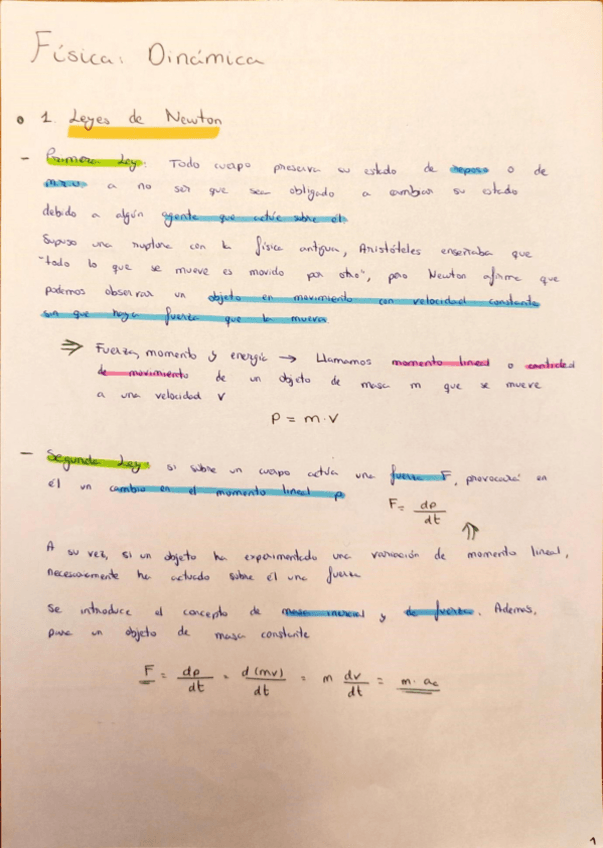 Física: Dinámica
1 Leyes de Newton
- Primera Ley: Todo cuerpo preserva su estado de reposo o de
m.r.u a no ser que sea obligado a cambiar su estado
debido a algún agente que actúe sobre él.
Supuso una ruptura con la física antigua, Aristóteles enseñaba que
"todo lo que se mueve es movido por otro", pero Newton afirma que
podemos observar un objeto en movimiento con velocidad constante
sin que haya fuerza que la mueva
⇒ Fuerza, momento y energía → Llamamos momento lineal o cantidad
de movimiento de un objeto de masa m que se mueve
a una velocidad v
P = m·v
- Segunda Ley: si sobre un cuerpo actúa una fuerza F, provocará en
él un cambio en el momento lineal p
F = dp/dt
A su vez, si un objeto ha experimentado una variación de momento lineal,
necesariamente ha actuado sobre él una fuerza
Se introduce el concepto de masa inercial y de fuerza. Además,
para un objeto de masa constante
F = dp/dt = d(mv)/dt = m dv/dt = m·a
1